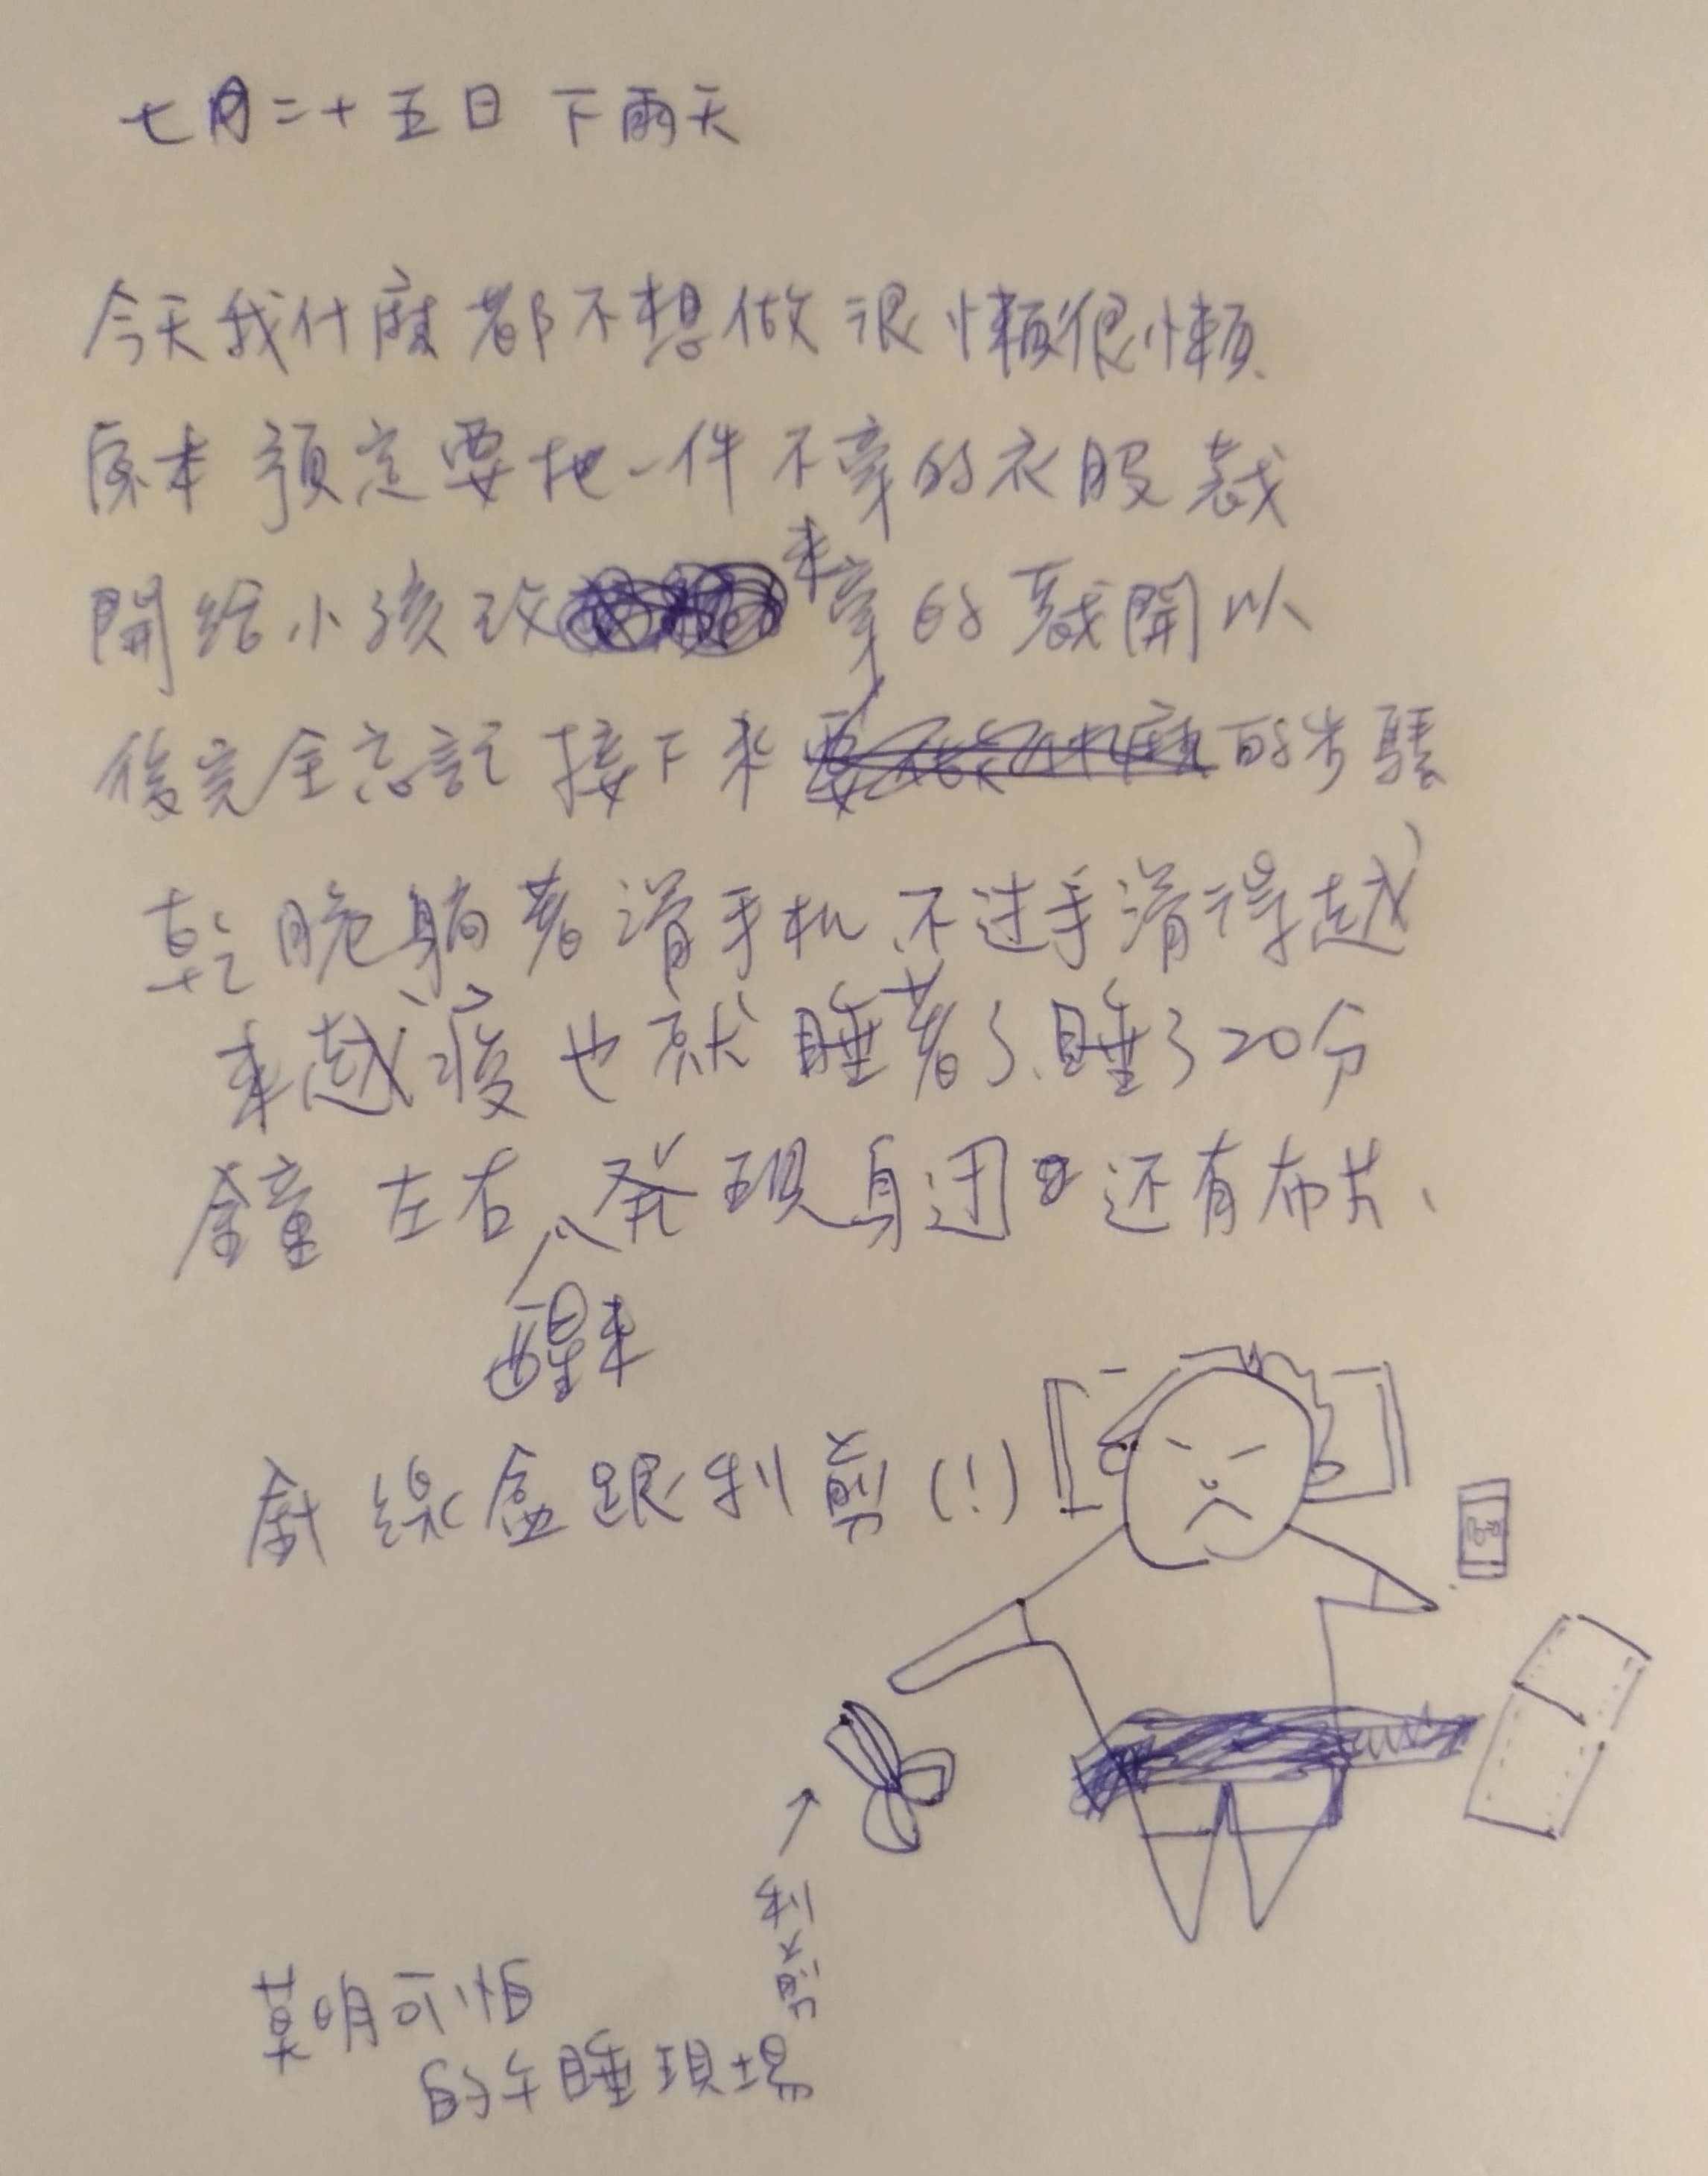 七月二十五日 下雨天
今天我什麼都不想做很懶很懶、
原本預定要把一件不穿的衣服裁
開給小孩改來穿的裁開以
後完全忘記接下來的步驟
乾脆躺著滑手机、不过手滑得越
來越痠也就睡著了、睡了20分
鐘左右、醒來發現身边還有布片、
針線盒跟利剪(!)
利剪
莫明可怕
的午睡現場